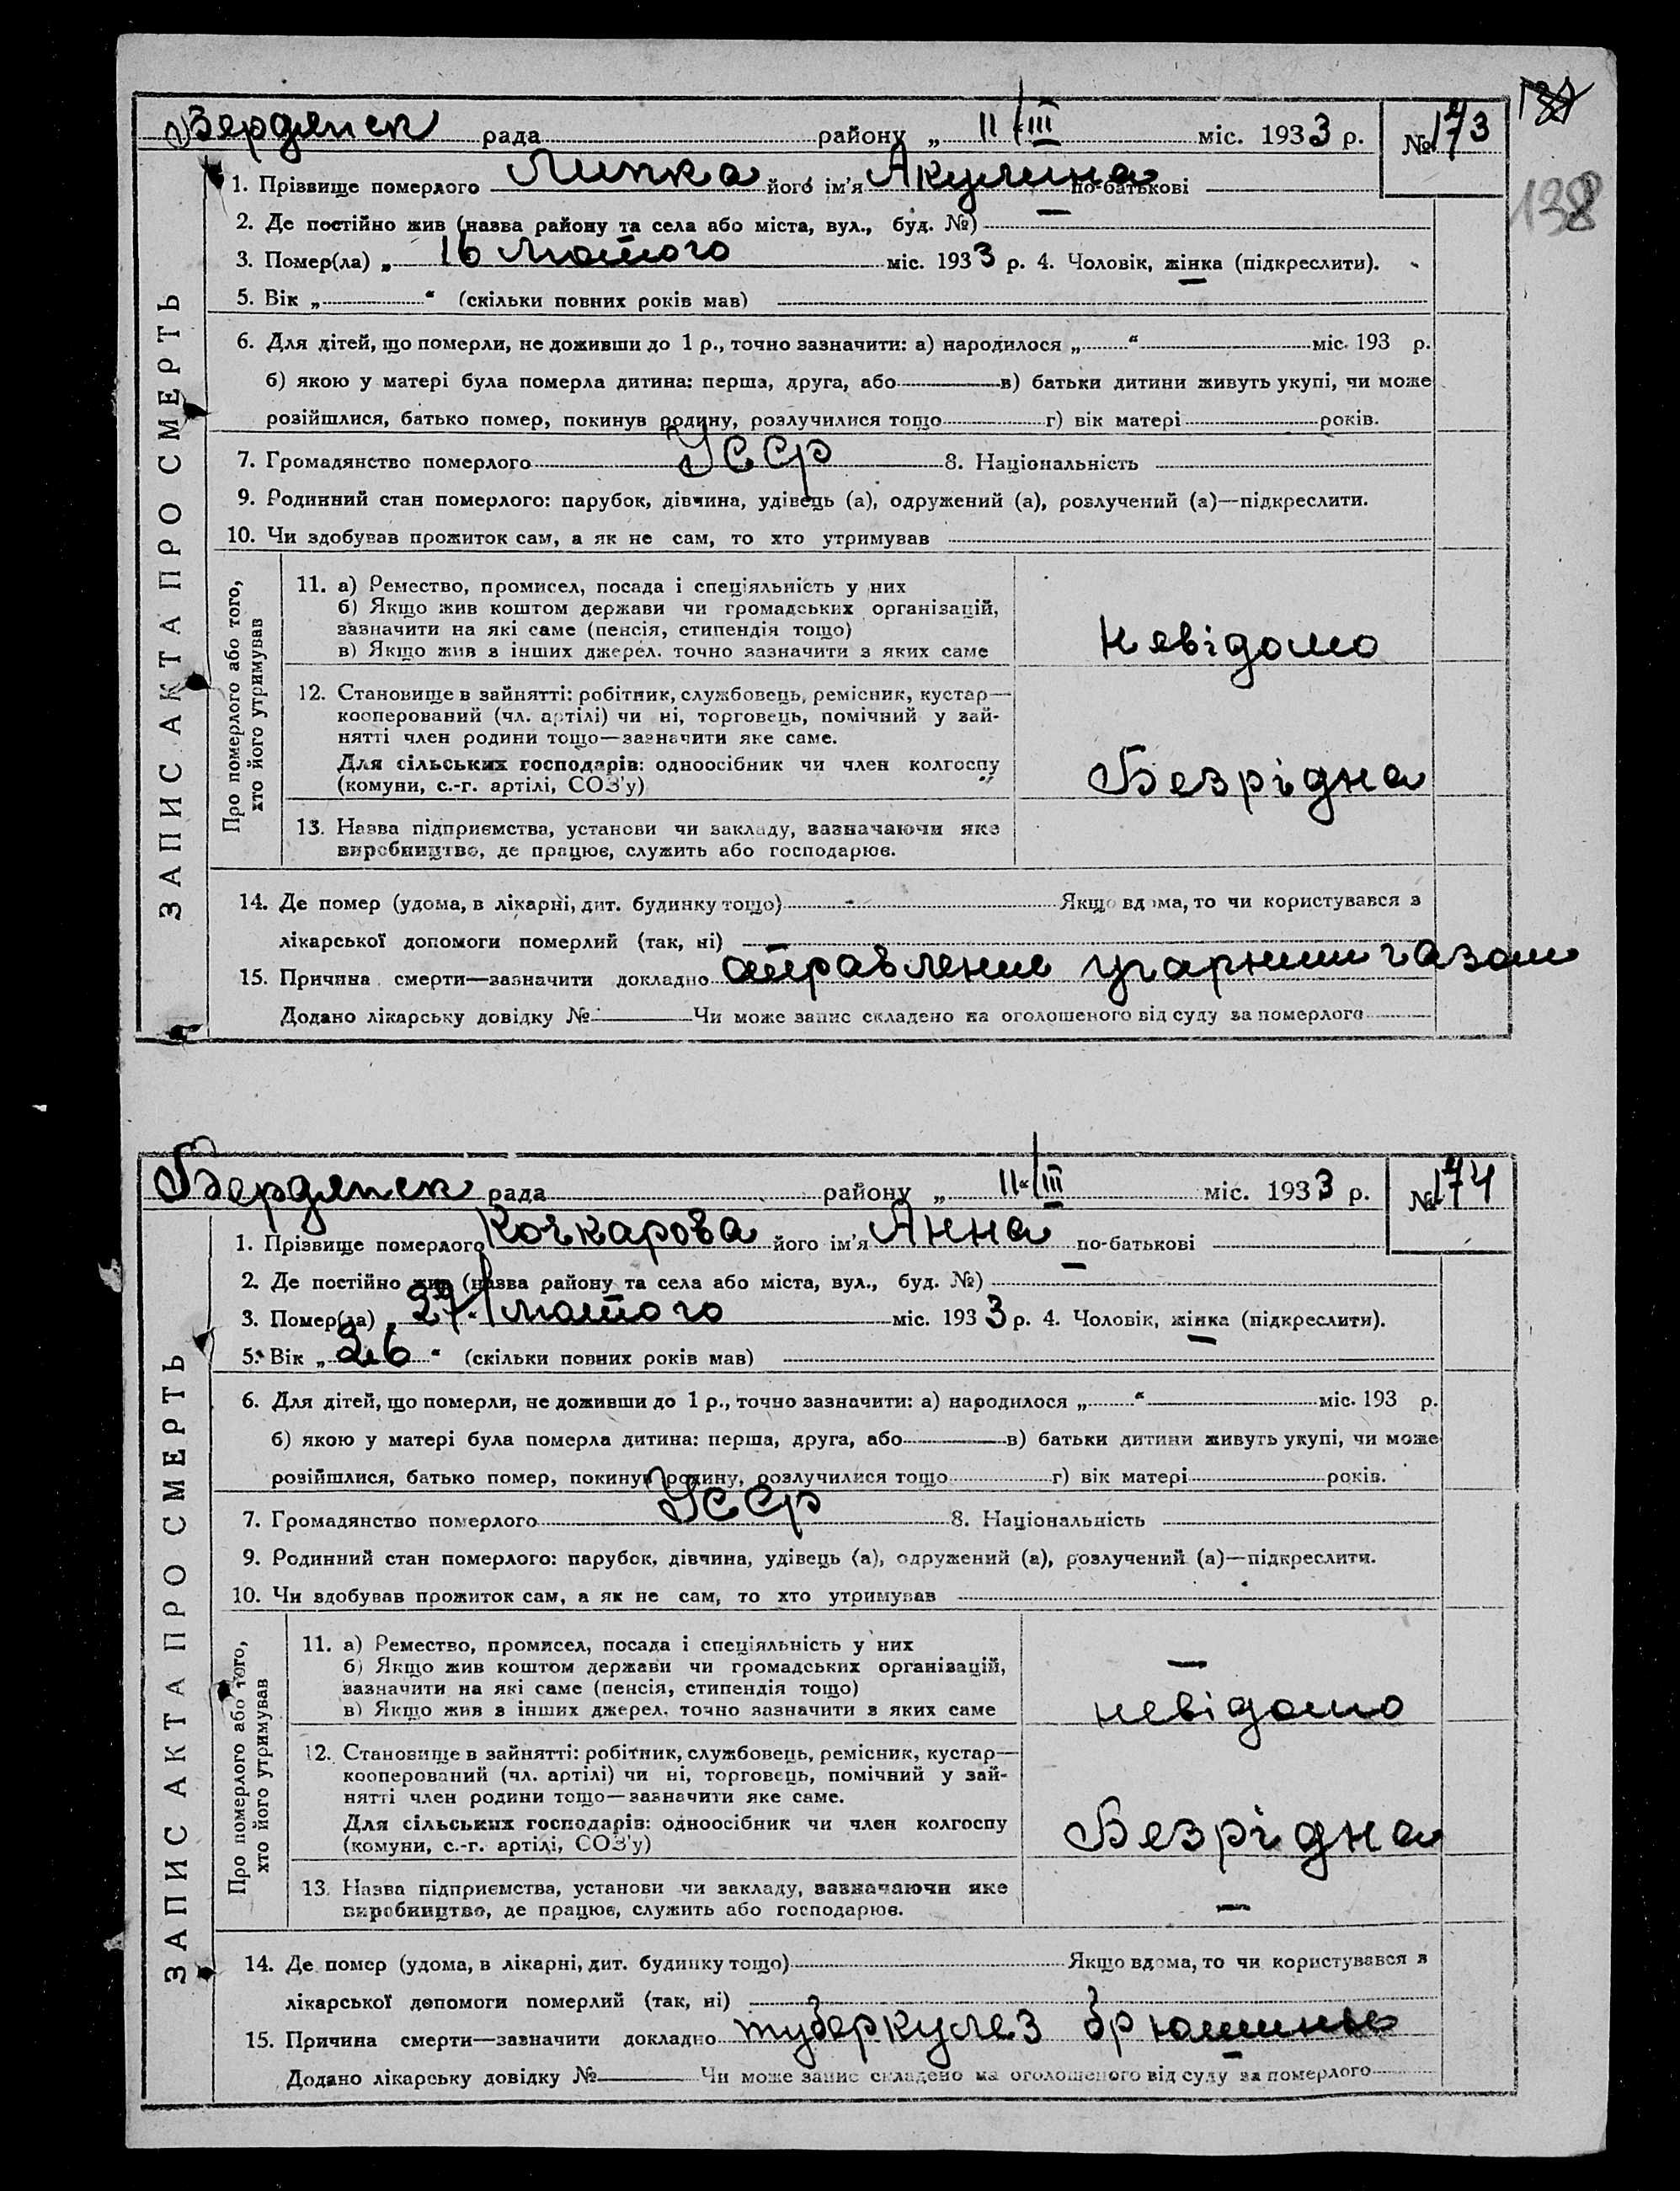 138
Бердянск рада району „ 11/III міс. 1933 р. № 173
1. Прізвище померлого Липка його ім'я Акулина по-батькові
138
2. Де постійно жив (назва району та села або міста, вул., буд. №) —
3. Помер(ла) „ 16 лютого міс. 1933 р. 4. Чоловік, жінка (підкреслити).
5. Вік „ “ (скільки повних років мав)
6. Для дітей, що померли, не доживши до 1 р., точно зазначити: а) народилося „ “ міс. 193 р.
б) якою у матері була померла дитина: перша, друга, або в) батьки дитини живуть укупі, чи може
розійшлися, батько помер, покинув родину, розлучилися тощо г) вік матері років.
7. Громадянство померлого УССР 8. Національність
9. Родинний стан померлого: парубок, дівчина, удівець (а), одружений (а), розлучений (а)—підкреслити.
10. Чи здобував прожиток сам, а як не сам, то хто утримував
ЗАПИС АКТА ПРО СМЕРТЬ
Про померлого або того,
хто його утримував
11. а) Ремество, промисел, посада і спеціяльність у них
б) Якщо жив коштом держави чи громадських організацій,
зазначити на які саме (пенсія, стипендія тощо)
в) Якщо жив з інших джерел. точно зазначити з яких саме
невідомо
12. Становище в зайнятті: робітник, службовець, ремісник, кустар—
кооперований (чл. артілі) чи ні, торговець, помічний у зай-
нятті член родини тощо—зазначити яке саме.
Для сільських господарів: одноосібник чи член колгоспу
(комуни, с.-г. артілі, СОЗ'у)
Безрідна
13. Назва підприємства, установи чи закладу, зазначаючи яке
виробництво, де працює, служить або господарює.
14. Де помер (удома, в лікарні, дит. будинку тощо) Якщо вдома, то чи користувався з
лікарської допомоги померлий (так, ні)
15. Причина смерти—зазначити докладно отравление угарним газом
Додано лікарську довідку № Чи може запис складено на оголошеного від суду за померлого
Бердянск рада району „ 11/III міс. 1933 р. № 174
1. Прізвище померлого Кочкарова його ім'я Анна по-батькові
2. Де постійно жив (назва району та села або міста, вул., буд. №) —
3. Помер(ла) „ 27 лютого міс. 1933 р. 4. Чоловік, жінка (підкреслити).
5. Вік „ 26 “ (скільки повних років мав)
6. Для дітей, що померли, не доживши до 1 р., точно зазначити: а) народилося „ “ міс. 193 р.
б) якою у матері була померла дитина: перша, друга, або в) батьки дитини живуть укупі, чи може
розійшлися, батько помер, покинув родину, розлучилися тощо г) вік матері років.
7. Громадянство померлого УССР 8. Національність
9. Родинний стан померлого: парубок, дівчина, удівець (а), одружений (а), розлучений (а)—підкреслити.
10. Чи здобував прожиток сам, а як не сам, то хто утримував
ЗАПИС АКТА ПРО СМЕРТЬ
Про померлого або того,
хто його утримував
11. а) Ремество, промисел, посада і спеціяльність у них
б) Якщо жив коштом держави чи громадських організацій,
зазначити на які саме (пенсія, стипендія тощо)
в) Якщо жив з інших джерел. точно зазначити з яких саме
—
невідомо
12. Становище в зайнятті: робітник, службовець, ремісник, кустар—
кооперований (чл. артілі) чи ні, торговець, помічний у зай-
нятті член родини тощо—зазначити яке саме.
Для сільських господарів: одноосібник чи член колгоспу
(комуни, с.-г. артілі, СОЗ'у)
Безрідна
13. Назва підприємства, установи чи закладу, зазначаючи яке
виробництво, де працює, служить або господарює.
—
14. Де помер (удома, в лікарні, дит. будинку тощо) Якщо вдома, то чи користувався з
лікарської допомоги померлий (так, ні)
15. Причина смерти—зазначити докладно туберкулез брюшины
Додано лікарську довідку № Чи може запис складено на оголошеного від суду за померлого